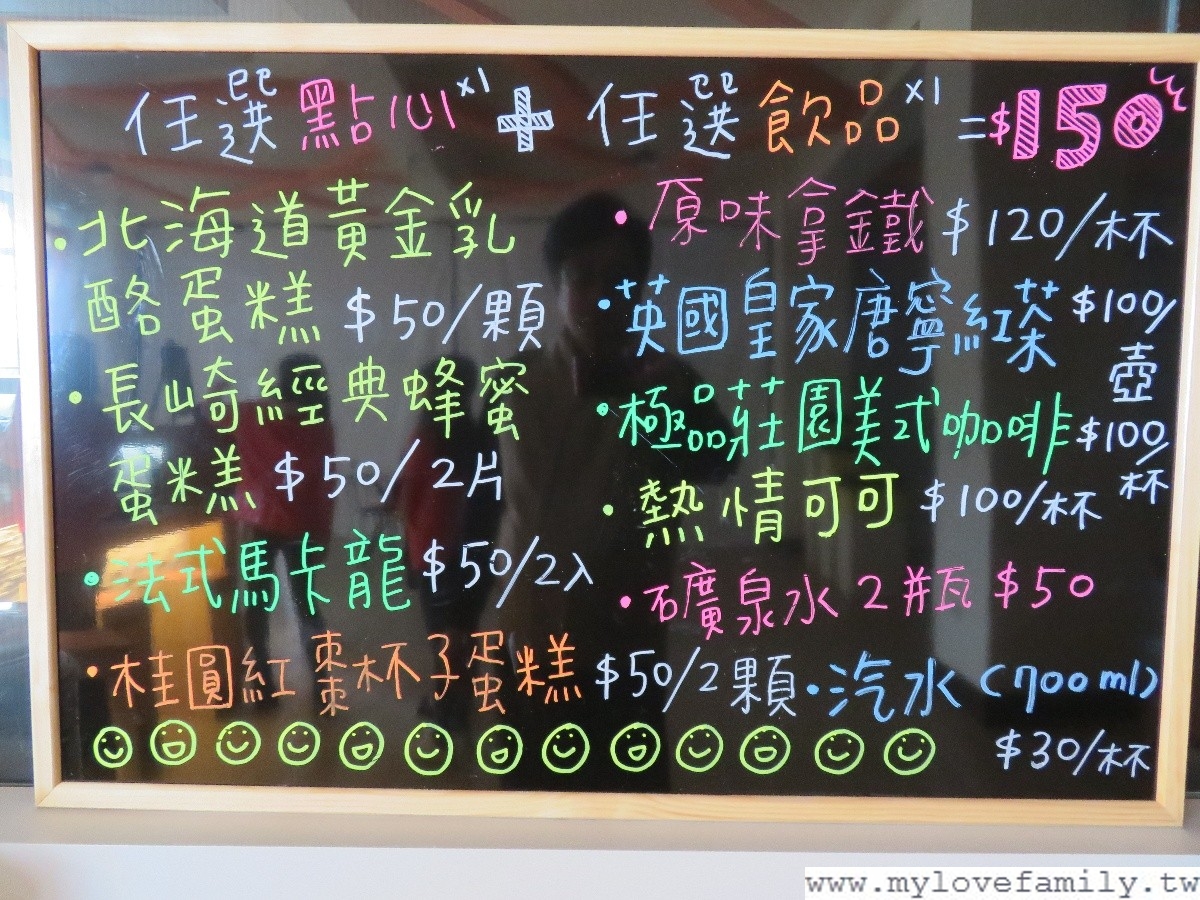 任選點心x1 + 任選飲品x1 =$150
·北海道黃金乳
酪蛋糕 $50/顆
·長崎經典蜂蜜
蛋糕 $50/2片
·法式馬卡龍 $50/2入
·桂圓紅棗杯子蛋糕 $50/2顆
·原味拿鐵 $120/杯
·英國皇家唐寧紅茶 $100/
壺
·極品莊園美式咖啡 $100/
杯
·熱情可可 $100/杯
·礦泉水2瓶 $50
·汽水(700ml)
$30/杯
www.mylovefamily.tw